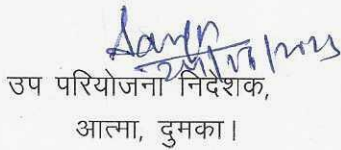 उप परियोजना निदेशक,
आत्मा, दुमका।